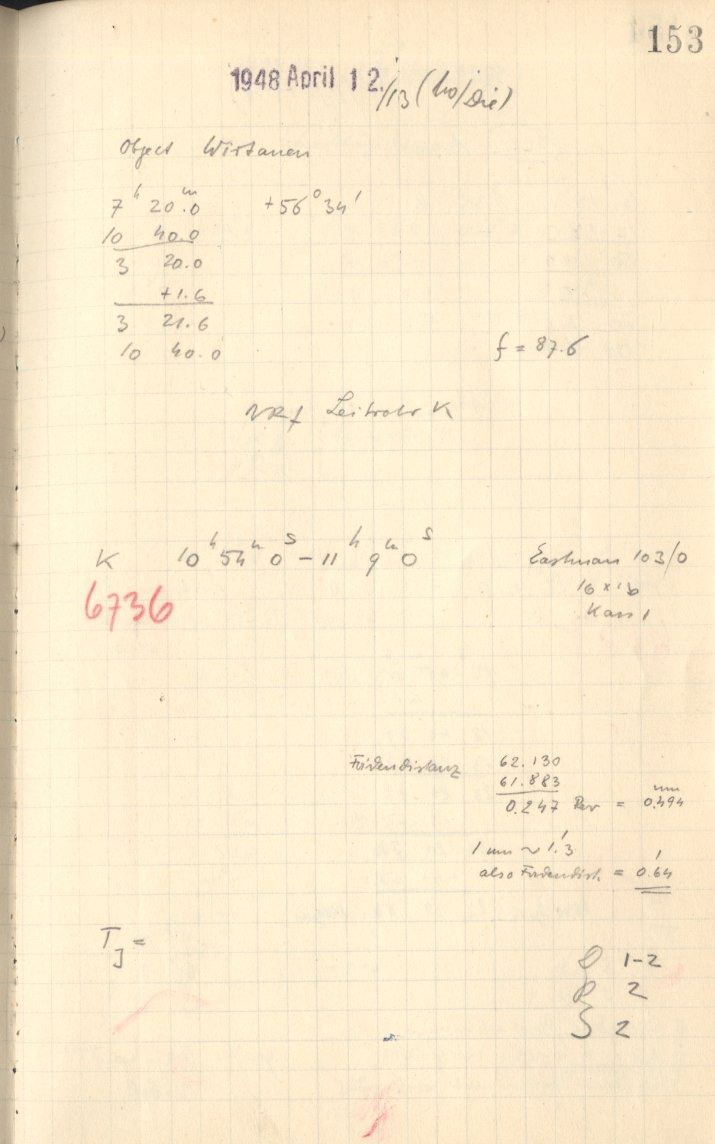 153
1948 April 12./13 (Mo/Die)
Object Wirtanen
7ʰ 20ᵐ.0 +56° 34'
10 40.0
3 20.0
+1.6
3 21.6
10 40.0
f = 87.6
Leitrohr K
K 10ʰ 54ᵐ 0ˢ - 11ʰ 9ᵐ 0ˢ Eastman 103/0
6736
16 x 16
Kass 1
Fädendistanz 62.130
61.883
0.247 Rev = 0.494 mm
1 mm ~ 1.'3
also Fädendist = 0.'64
T_J =
1-2
2
S 2